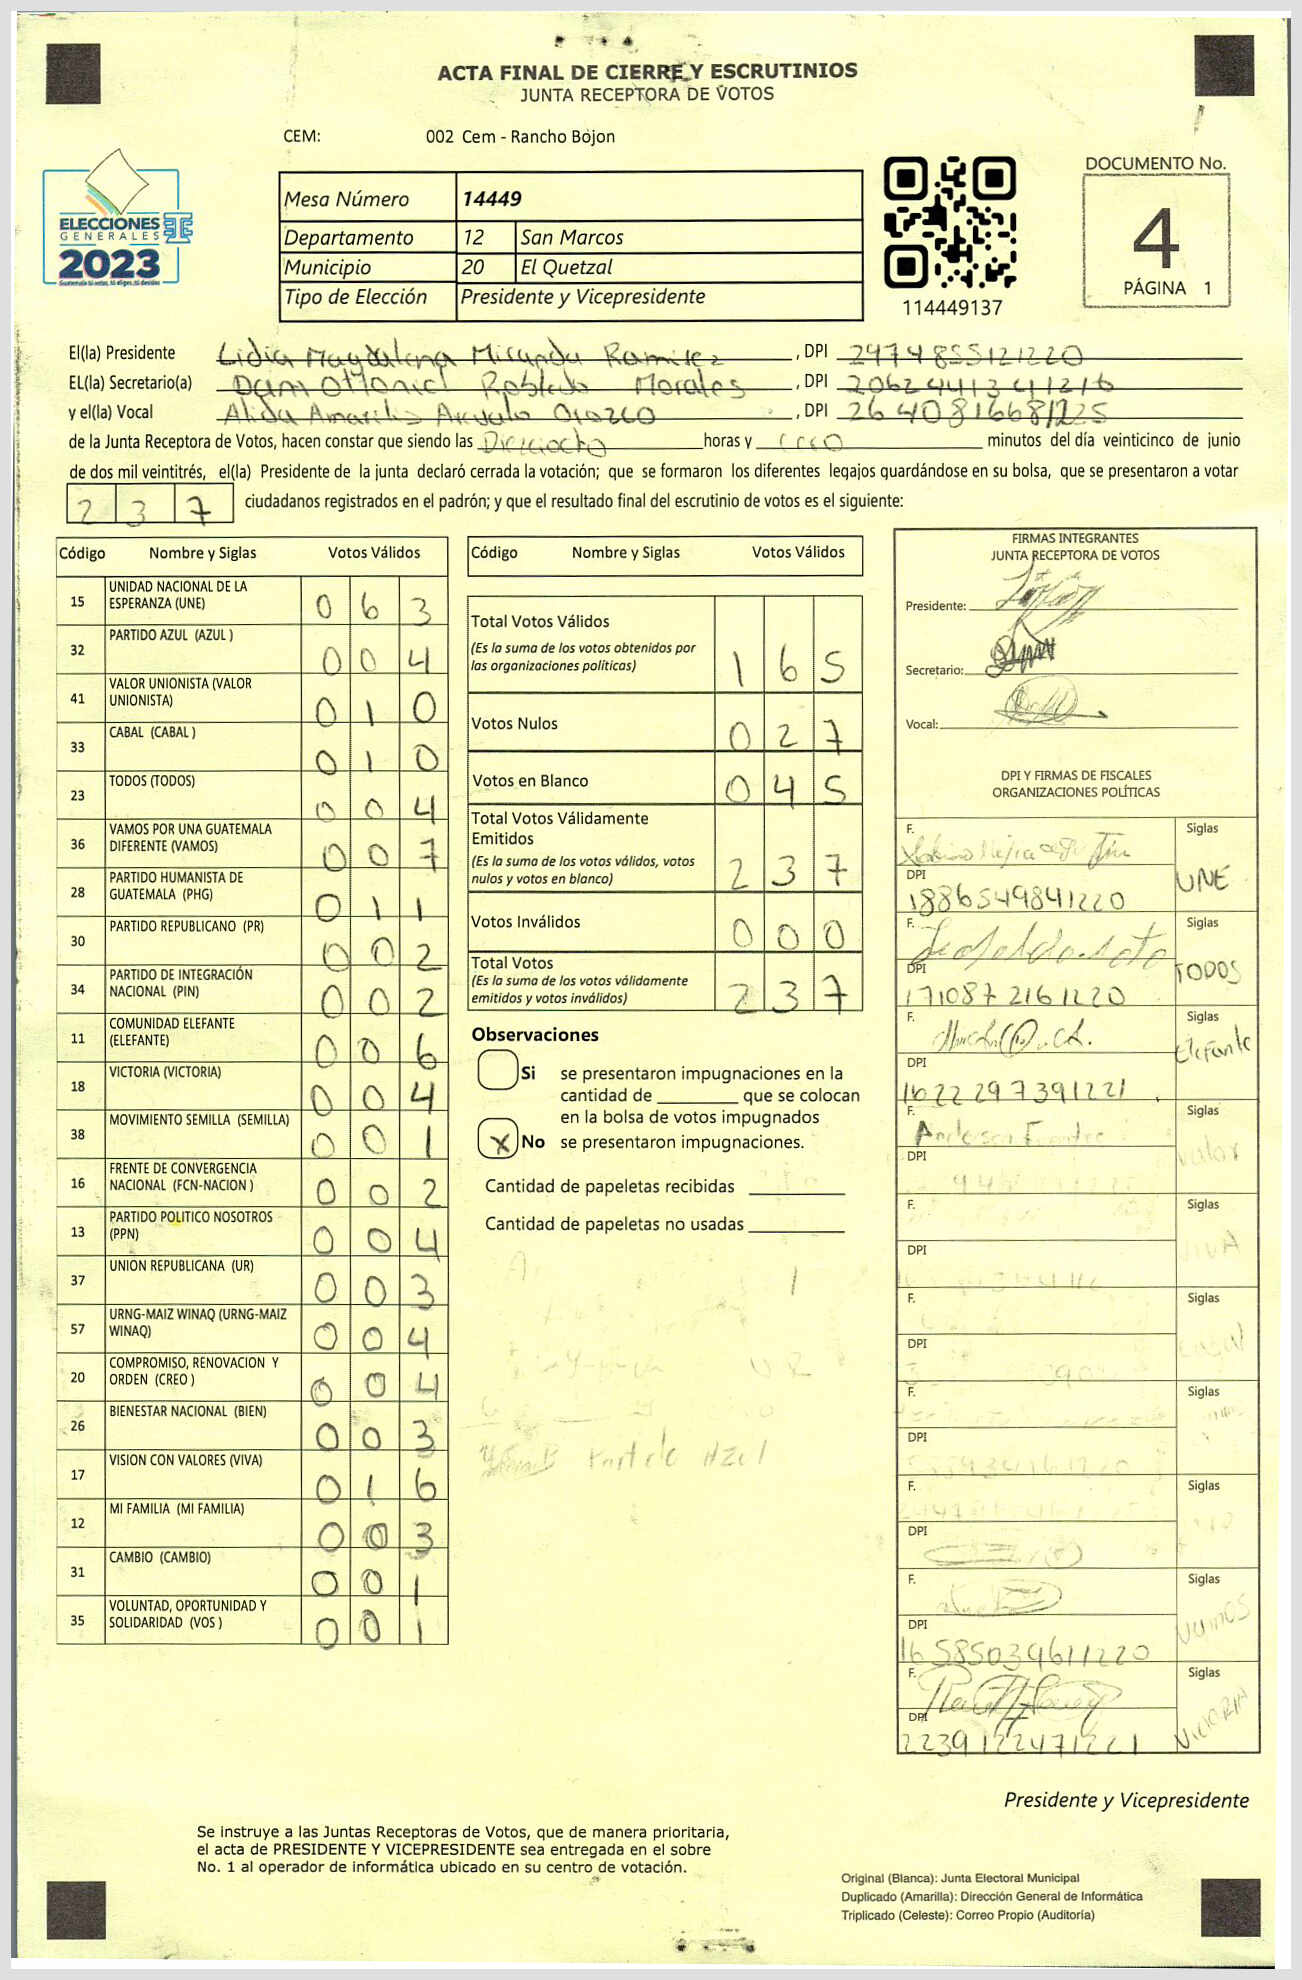 ACTA FINAL DE CIERRE Y ESCRUTINIOS
JUNTA RECEPTORA DE VOTOS
CEM: 002 Cem - Rancho Bojon
ELECCIONES
GENERALES
2023
Mesa Número 14449
Departamento 12 San Marcos
Municipio 20 El Quetzal
Tipo de Elección Presidente y Vicepresidente
114449137
DOCUMENTO No.
4
PÁGINA 1
El(la) Presidente Lidia Magdalena Miranda Ramirez, DPI 2474855121220
EL(la) Secretario(a) Dani Ottoniel Robledo Morales, DPI 2062441341216
y el(la) Vocal Alida Amarilis Arevalo Orozco, DPI 2640816681225
de la Junta Receptora de Votos, hacen constar que siendo las Dieciocho horas y cero minutos del día veinticinco de junio
de dos mil veintitrés, el(la) Presidente de la junta declaró cerrada la votación; que se formaron los diferentes legajos guardándose en su bolsa, que se presentaron a votar
237 ciudadanos registrados en el padrón; y que el resultado final del escrutinio de votos es el siguiente:
Código Nombre y Siglas Votos Válidos
15 UNIDAD NACIONAL DE LA ESPERANZA (UNE) 063
32 PARTIDO AZUL (AZUL ) 004
41 VALOR UNIONISTA (VALOR UNIONISTA) 010
33 CABAL (CABAL ) 010
23 TODOS (TODOS) 004
36 VAMOS POR UNA GUATEMALA DIFERENTE (VAMOS) 007
28 PARTIDO HUMANISTA DE GUATEMALA (PHG) 011
30 PARTIDO REPUBLICANO (PR) 002
34 PARTIDO DE INTEGRACIÓN NACIONAL (PIN) 002
11 COMUNIDAD ELEFANTE (ELEFANTE) 006
18 VICTORIA (VICTORIA) 004
38 MOVIMIENTO SEMILLA (SEMILLA) 001
16 FRENTE DE CONVERGENCIA NACIONAL (FCN-NACION ) 002
13 PARTIDO POLITICO NOSOTROS (PPN) 004
37 UNION REPUBLICANA (UR) 003
57 URNG-MAIZ WINAQ (URNG-MAIZ WINAQ) 004
20 COMPROMISO, RENOVACION Y ORDEN (CREO ) 004
26 BIENESTAR NACIONAL (BIEN) 003
17 VISION CON VALORES (VIVA) 016
12 MI FAMILIA (MI FAMILIA) 003
31 CAMBIO (CAMBIO) 001
35 VOLUNTAD, OPORTUNIDAD Y SOLIDARIDAD (VOS ) 001
Código Nombre y Siglas Votos Válidos
Total Votos Válidos
(Es la suma de los votos obtenidos por las organizaciones políticas) 165
Votos Nulos 027
Votos en Blanco 045
Total Votos Válidamente Emitidos
(Es la suma de los votos válidos, votos nulos y votos en blanco) 237
Votos Inválidos 000
Total Votos
(Es la suma de los votos válidamente emitidos y votos inválidos) 237
Observaciones
Si se presentaron impugnaciones en la
cantidad de ________ que se colocan
en la bolsa de votos impugnados
X No se presentaron impugnaciones.
Cantidad de papeletas recibidas
Cantidad de papeletas no usadas
UR
Partido Azul
FIRMAS INTEGRANTES
JUNTA RECEPTORA DE VOTOS
Presidente:
Secretario:
Vocal:
DPI Y FIRMAS DE FISCALES
ORGANIZACIONES POLÍTICAS
F. Siglas
DPI 1886549841220 UNE
F. Siglas
DPI 1710872161220 TODOS
F. Siglas
DPI 1622297391221 Elefante
F. Anderson Fuentes Siglas
DPI Valor
F. Siglas
DPI VIVA
F. Siglas
DPI
F. Siglas
DPI
F. Siglas
DPI
F. Siglas
DPI 1658503961220 Vamos
F. Siglas
DPI 2239122471221 VICTORIA
Presidente y Vicepresidente
Se instruye a las Juntas Receptoras de Votos, que de manera prioritaria,
el acta de PRESIDENTE Y VICEPRESIDENTE sea entregada en el sobre
No. 1 al operador de informática ubicado en su centro de votación.
Original (Blanca): Junta Electoral Municipal
Duplicado (Amarilla): Dirección General de Informática
Triplicado (Celeste): Correo Propio (Auditoría)